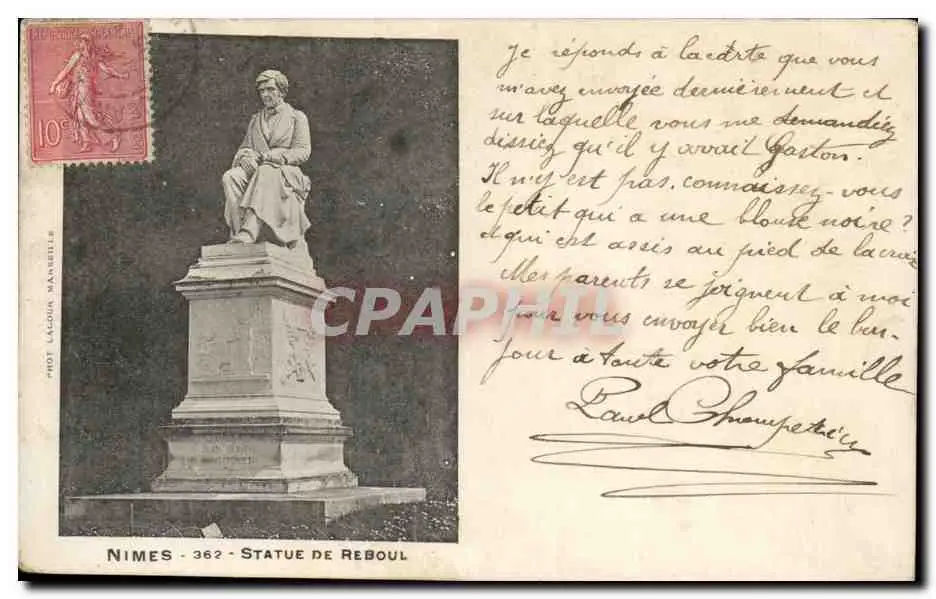 10c
PHOT LACOUR MARSEILLE
NIMES - 362 - STATUE DE REBOUL
CPAPHIL
Je réponds à la carte que vous
m'avez envoyée dernièrement et
sur laquelle vous me demandiez
dissiez qu'il y avait Gaston.
Il n'y est pas. connaissez-vous
le petit qui a une blouse noire?
et qui est assis au pied de la croix
Mes parents se joignent à moi
pour vous envoyer bien le bon-
jour à toute votre famille
Paul